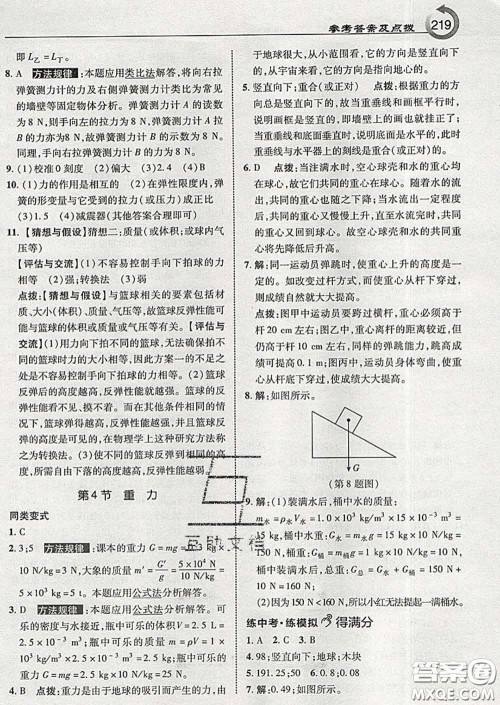 参考答案及点拨 219
即 L乙=L丁。
8. A 方法规律：本题应用类比法解答，将向右拉
弹簧测力计的力及右侧弹簧测力计类比为常见
的墙壁等固定物体分析。弹簧测力计 A 的读数
为 8 N，则手向左的拉力为 8 N，弹簧测力计 A 拉
B 的力亦为 8 N，故弹簧测力计 B 的示数为 8 N。
同理，手向右拉弹簧测力计的力为 8 N。
9. (1)校准 0 刻度 (2)偏大 (3)2.4 (4)B
10. (1)力的作用是相互的 (2)在弹性限度内，弹
簧的形变量与它受到的拉力(或压力)成正比
(3)1.5 (4)减震器(其他答案合理即可)
11.【猜想与假设】猜想二：质量(或体积；或球内气
压等)
【评估与交流】(1)不容易控制手向下拍球的力
相等 (2)强；转换法 (3)弱
点拨：【猜想与假设】与篮球相关的要素包括材
质、大小、质量、气压等，故篮球反弹性能可能
与篮球的质量、体积、球内气压等有关。【评估
与交流】(1)用力向下拍不同的篮球时，不能保
证每次用力的大小相等，故此方案的一个不足之处
是不容易控制手向下拍球的力相等。(2)篮球
反弹后的高度越大，反弹性能就越强。篮球的反
弹性能不易直接观察，通过篮球反弹的高度来
判断，在物理学上这种研究方法称
之为转换法。(3)在其他条件相同的情况下，
反弹后的高度越高，反弹性能越强。
第 4 节 重 力
同类变式
1. C
2. 3；5 方法规律：课本的重力 G=mg=0.3 kg×
10 N/kg=3 N，大象的质量 m′=G′/g=(5×10⁴ N)/(10 N/kg)=
5×10³ kg=5 t。本题应用公式法分析解答。
3. D 方法规律：本题应用公式法分析解答。可
乐的密度与水接近，瓶中可乐的体积大约为
2.5 L，瓶中可乐的质量 m=ρV=1.0×
10³ kg/m³×2.5×10⁻³ m³=2.5 kg，瓶中可乐的
重力 G=mg=2.5 kg×10 N/kg=25 N。
4. B 点拨：重力是由于地球的吸引而产生的力，由
于地球很大，但其表面的某一小部分可看成
水平的，从小范围来看，它的方向是竖直向下
的，从宇宙来看，它的方向是指向地心的。
5. 竖直向下；重合(或平行) 点拨：重力的方向
是竖直向下的，当重垂线和画框平行时，
说明画框是竖直的，即墙上的画是竖直的。当重
垂线和底面垂直时，说明底面是水平的，此时重
垂线与水平器上的刻线是重合(或平行)的。
6. D 点拨：当注满水时，空心球壳和水的重心均
在球心，故它们共同的重心也在球心。随着水的
流出，共同的重心位置下降，当水流出一定量后，
共同的重心又慢慢上升，直至水流完时，共同的
重心上升至球心。故空心球壳和水的共同重心
将先降低后升高。
7. 解：同一运动员弹跳时，使重心上升的高度是一
定的。如改变过杆方式，而使重心从杆下穿过，
则成绩将大大提高。
点拨：图甲中运动员跨越过横杆，重心的高度高
于杆 20 cm 左右；图乙中重心离杆的距离较近，但
仍高于杆 10 cm 左右，同样的弹跳，跳高成
绩可提高 0.1 m；图丙中，运动员身体弯曲，使重
心从杆下穿过，故使成绩大大提高。
8. 解：如图所示。
G
(第 8 题图)
9. 解：(1)装满水后，桶中水的质量：
m水=ρ水V水=1.0×10³ kg/m³×15×10⁻³ m³=
15 kg
装满水后，桶中水的重力：
G水=m水g=15 kg×10 N/kg=150 N
(2)提起装满水的桶所用的力：
F=G总=G水+G桶=150 N+20 N=170 N
因为 170 N<350 N，所以小红无法提起一满桶水。
练中考·练模拟 得满分
1. A 2. C 3. B
4. 98；竖直向下；地球；木块
5. 191.25；50 6. 0.8；0.08
7. 解：如图所示。
互助文档
答案圈
MXQE.COM